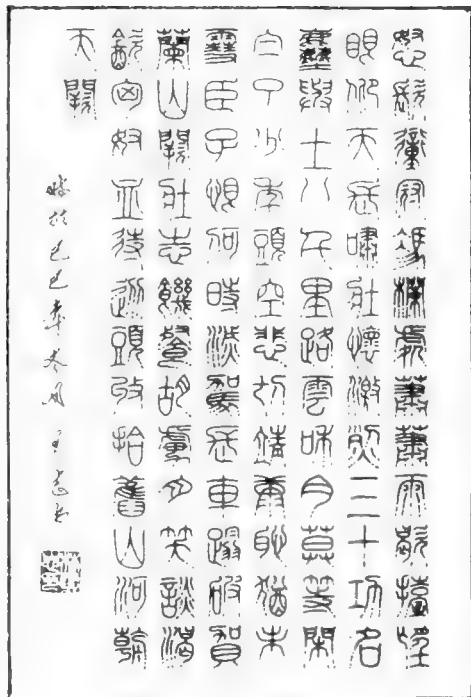 怒髮衝冠憑欄處蕭蕭雨歇擡望
眼仰天長嘯壯懷激烈三十功名
塵與土八千里路雲和月莫等閑
白了少年頭空悲切靖康恥猶未
雪臣子恨何時滅駕長車踏破賀
蘭山闕壯志饑餐胡虜肉笑談渴
飲匈奴血待從頭收拾舊山河朝
天闕
於己巳年冬月